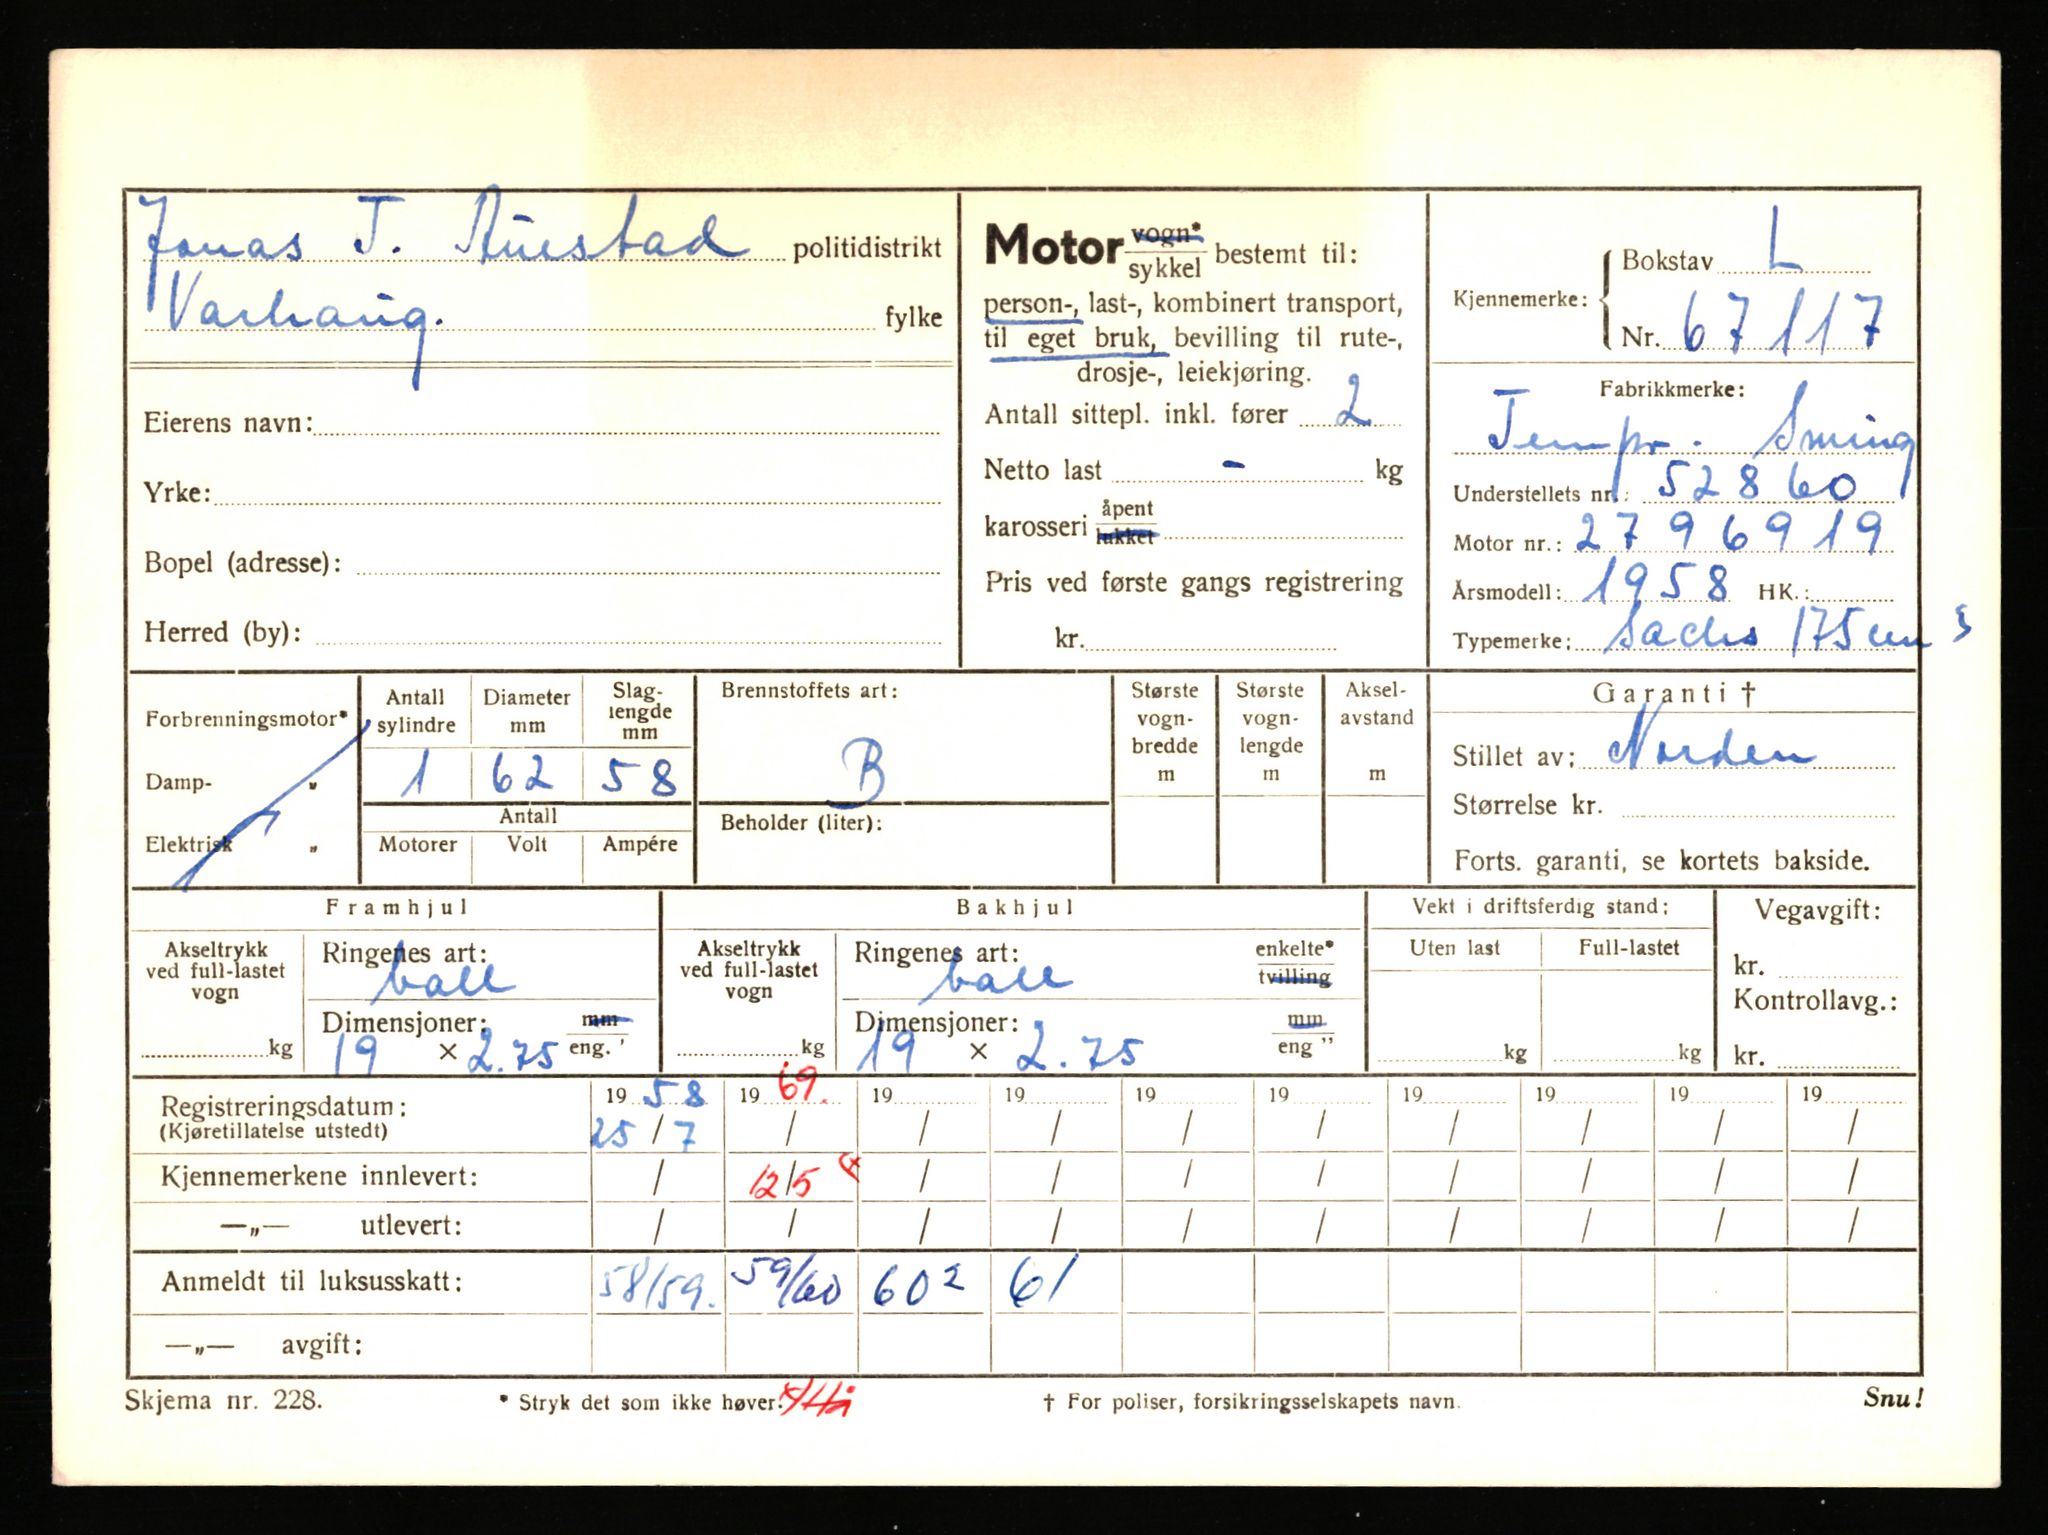 Jonas T. Auestad politidistrikt
Varhaug. fylke
Eierens navn:
Yrke:
Bopel (adresse):
Herred (by):
Motor vogn* / sykkel bestemt til:
person-, last-, kombinert transport,
til eget bruk, bevilling til rute-,
drosje-, leiekjøring.
Antall sittepl. inkl. fører 2
Netto last - kg
karosseri åpent / lukket
Pris ved første gangs registrering
kr.
Kjennemerke: Bokstav L
Nr. 67117
Fabrikkmerke:
Tempo. Swing
Understellets nr.: 52860
Motor nr.: 2796919
Årsmodell: 1958 HK.:
Typemerke: Sachs 175 cm 3
Forbrenningsmotor*
Damp- „
Elektrisk „
Antall sylindre
Diameter mm
Slag-lengde mm
1 62 58
Antall
Motorer Volt Ampére
Brennstoffets art:
B
Beholder (liter):
Største vogn-bredde m
Største vogn-lengde m
Aksel-avstand m
Garanti †
Stillet av: Norden
Størrelse kr.
Forts. garanti, se kortets bakside.
Framhjul
Akseltrykk ved full-lastet vogn
kg
Ringenes art:
ball
Dimensjoner: mm / eng. '
19 × 2.75
Bakhjul
Akseltrykk ved full-lastet vogn
kg
Ringenes art: enkelte* / tvilling
ball
Dimensjoner: mm / eng "
19 × 2.75
Vekt i driftsferdig stand:
Uten last Full-lastet
kg kg
Vegavgift:
kr.
Kontrollavg.:
kr.
Registreringsdatum: 19 58 19 69. 19 19 19 19 19 19 19 19
(Kjøretillatelse utstedt) 25/7 / / / / / / / / /
Kjennemerkene innlevert: / 12/5 / / / / / / / /
—„— utlevert: / / / / / / / / / /
Anmeldt til luksusskatt: 58/59. 59/60 60 2 61
—„— avgift:
Skjema nr. 228. * Stryk det som ikke høver. † For poliser, forsikringsselskapets navn. Snu!